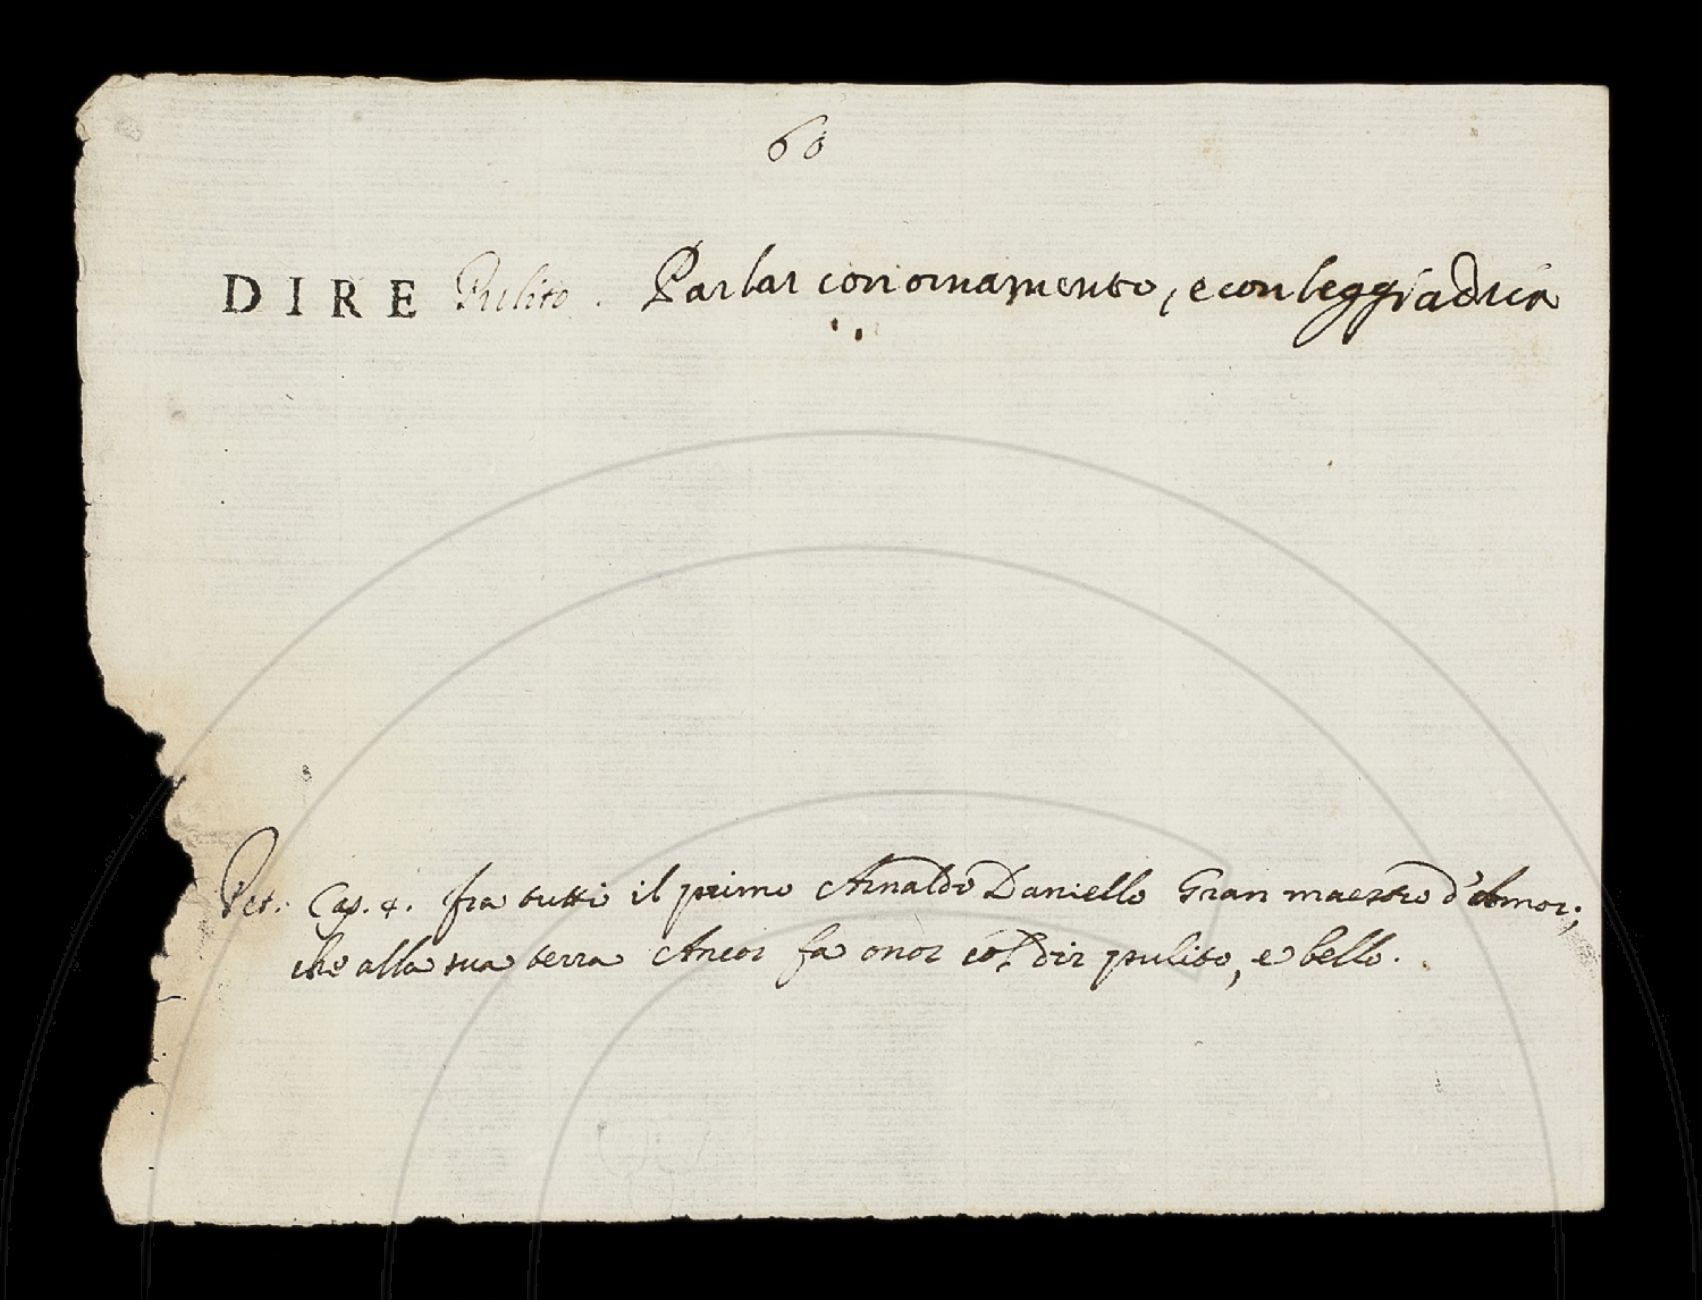 60
DIRE Pulito. Parlar con ornamento, e con leggiadria
Pet. Cap. 4. fra tutti il primo Arnaldo Daniello Gran maestro d'Amor;
che alla sua terra Ancor fa onor col dir pulito, e bello.